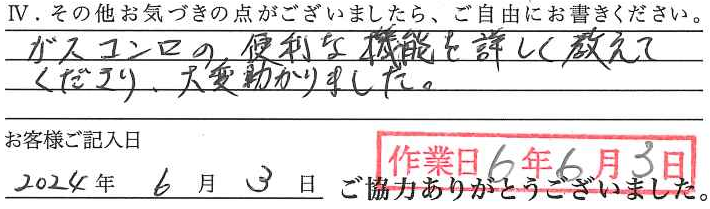 Ⅳ．その他お気づきの点がございましたら、ご自由にお書きください。
ガスコンロの便利な機能を詳しく教えて
くださり、大変助かりました。
お客様ご記入日
作業日6年6月3日
2024年 6月 3日 ご協力ありがとうございました。